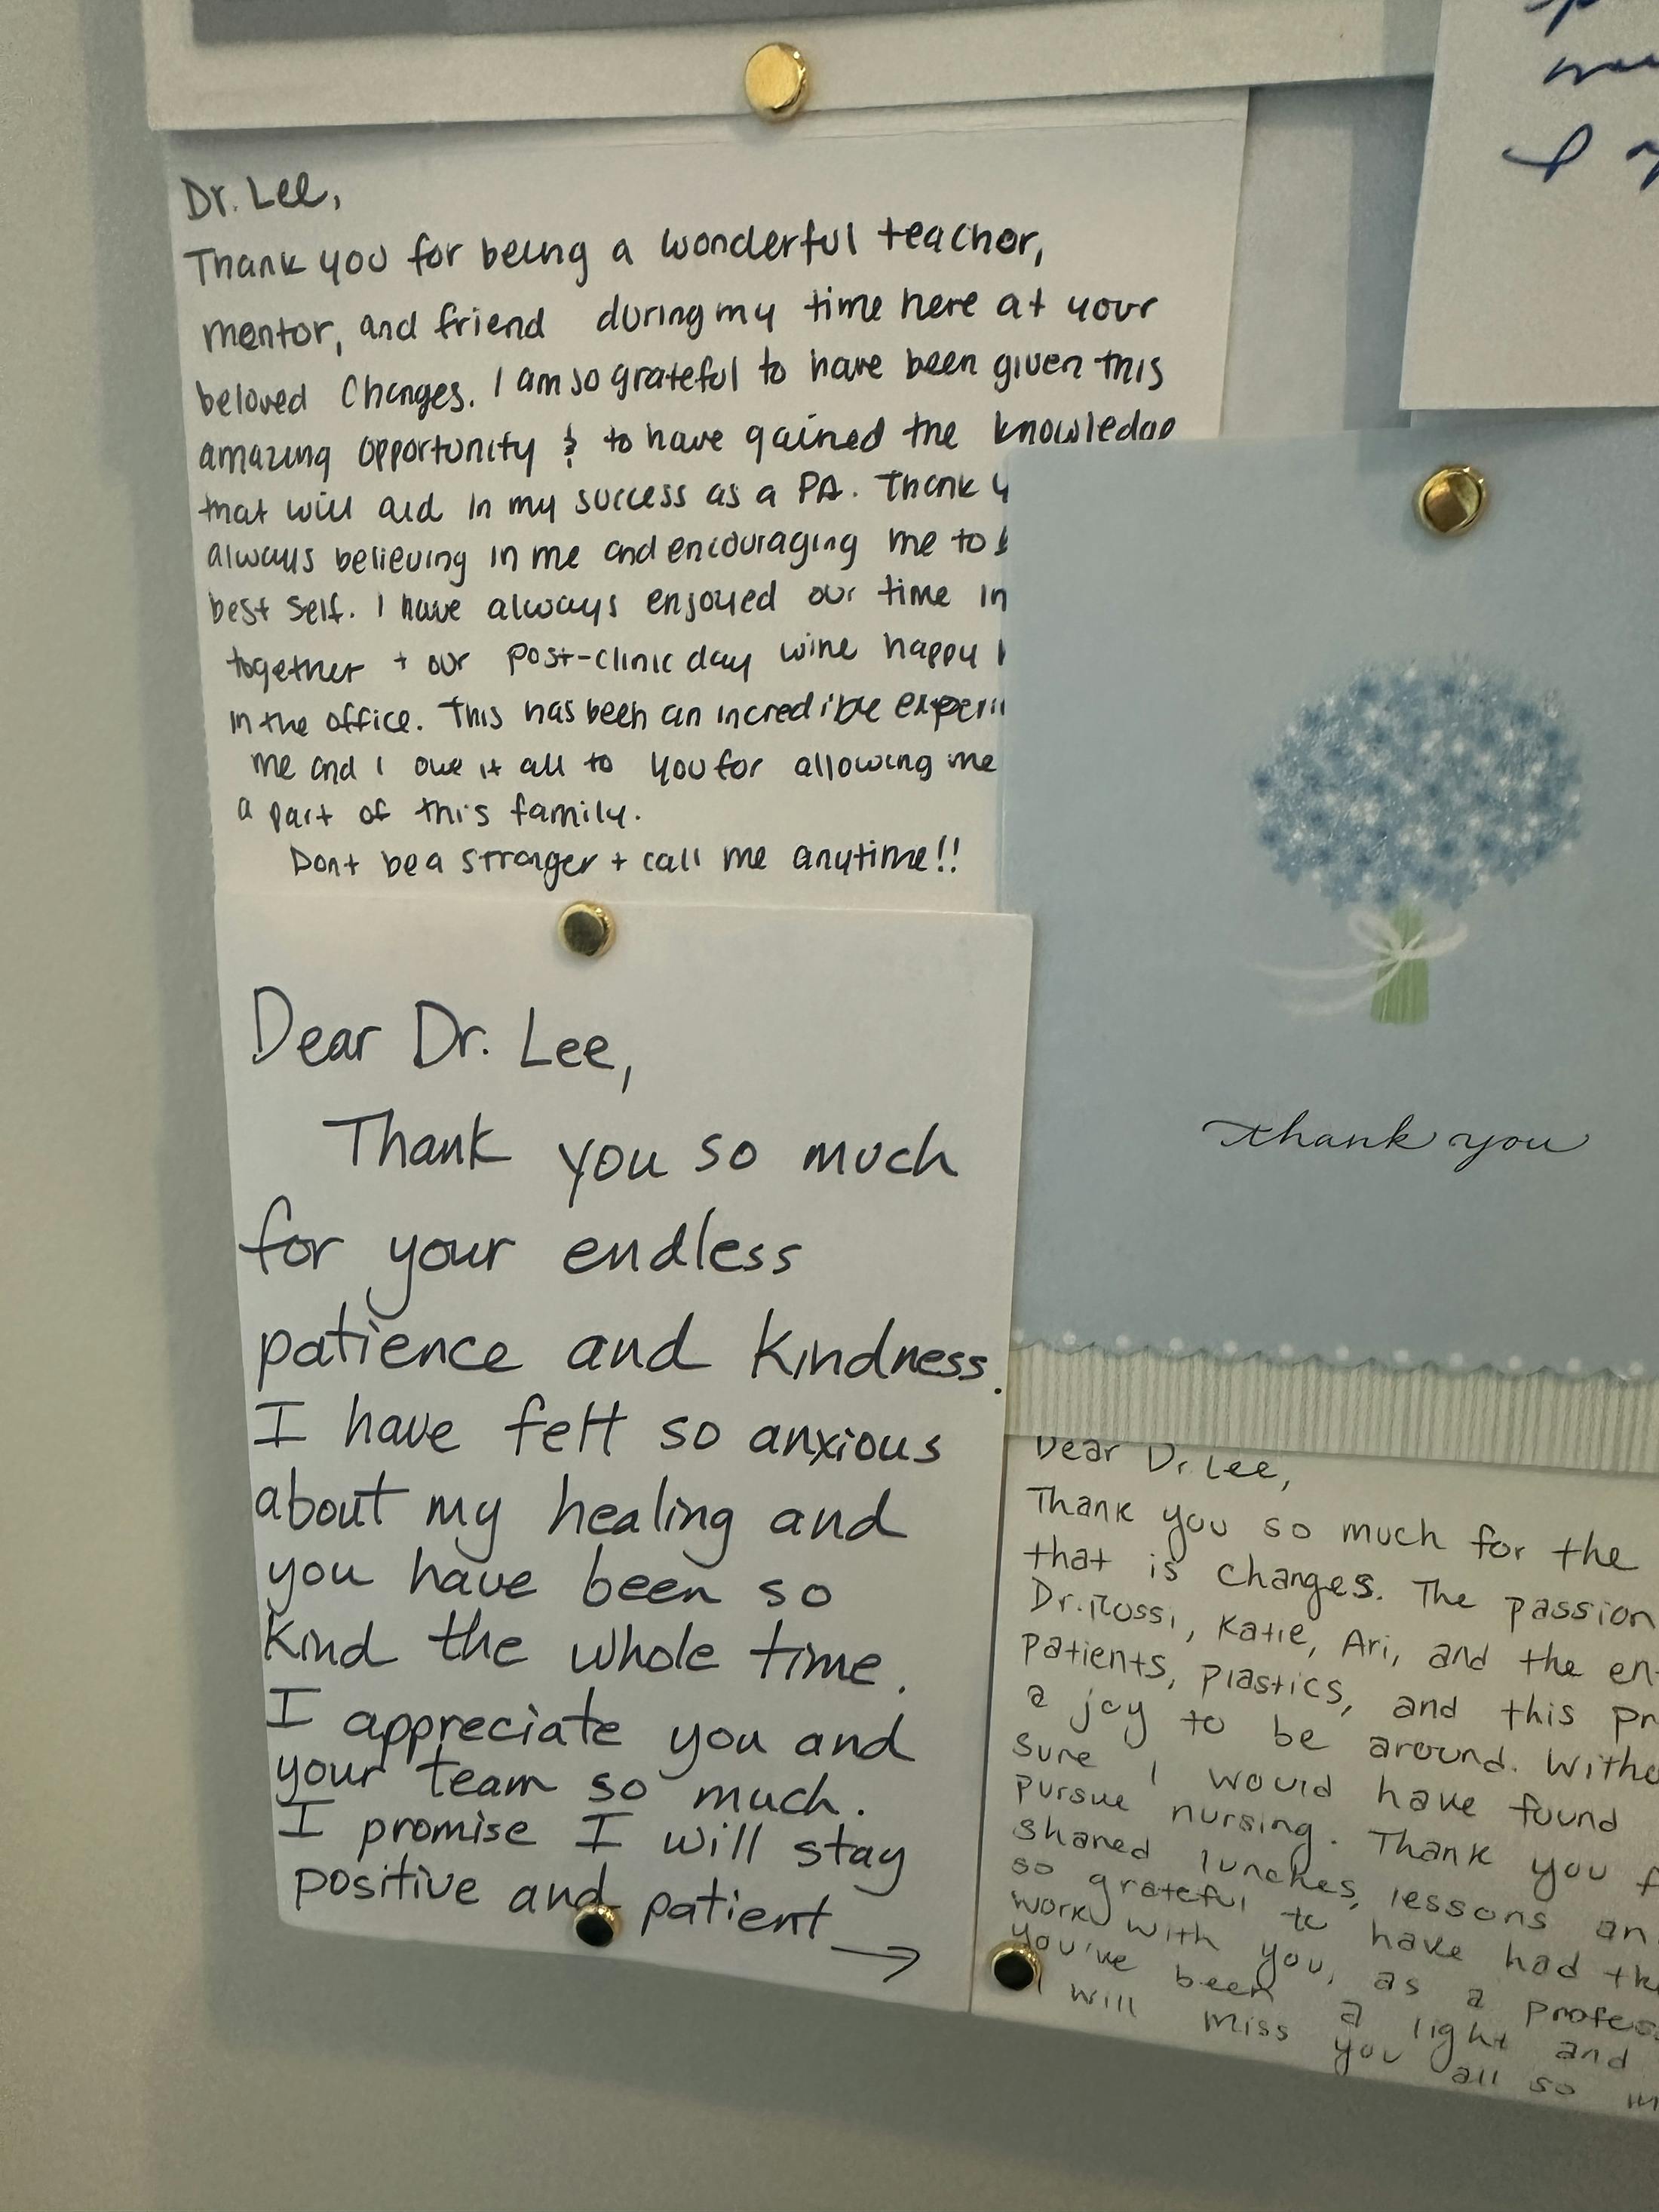 Dr. Lee,
Thank you for being a wonderful teacher,
mentor, and friend during my time here at your
beloved Changes. I am so grateful to have been given this
amazing opportunity & to have gained the knowledge
that will aid in my success as a PA. Thank
always believing in me and encouraging me to
best self. I have always enjoyed our time in
together + our post-clinic day wine happy
in the office. This has been an incredible
me and I owe it all to you for allowing me
a part of this family.
Dont be a stranger + call me anytime!!
I
Dear Dr. Lee,
Thank you so much
for your endless
patience and kindness.
I have felt so anxious
about my healing and
you have been so
kind the whole time.
I appreciate you and
your team so much.
I promise I will stay
positive and patient →
thank you
Dear Dr. Lee,
Thank you so much for the
that is changes. The passion
Dr. Rossi, Katie, Ari, and the
patients, plastics, and this
a joy to be around.
sure I would have found
pursue nursing. Thank you
shared lunches, lessons
so grateful to have had
work with you, as a
you've been a light and
I will miss you all so